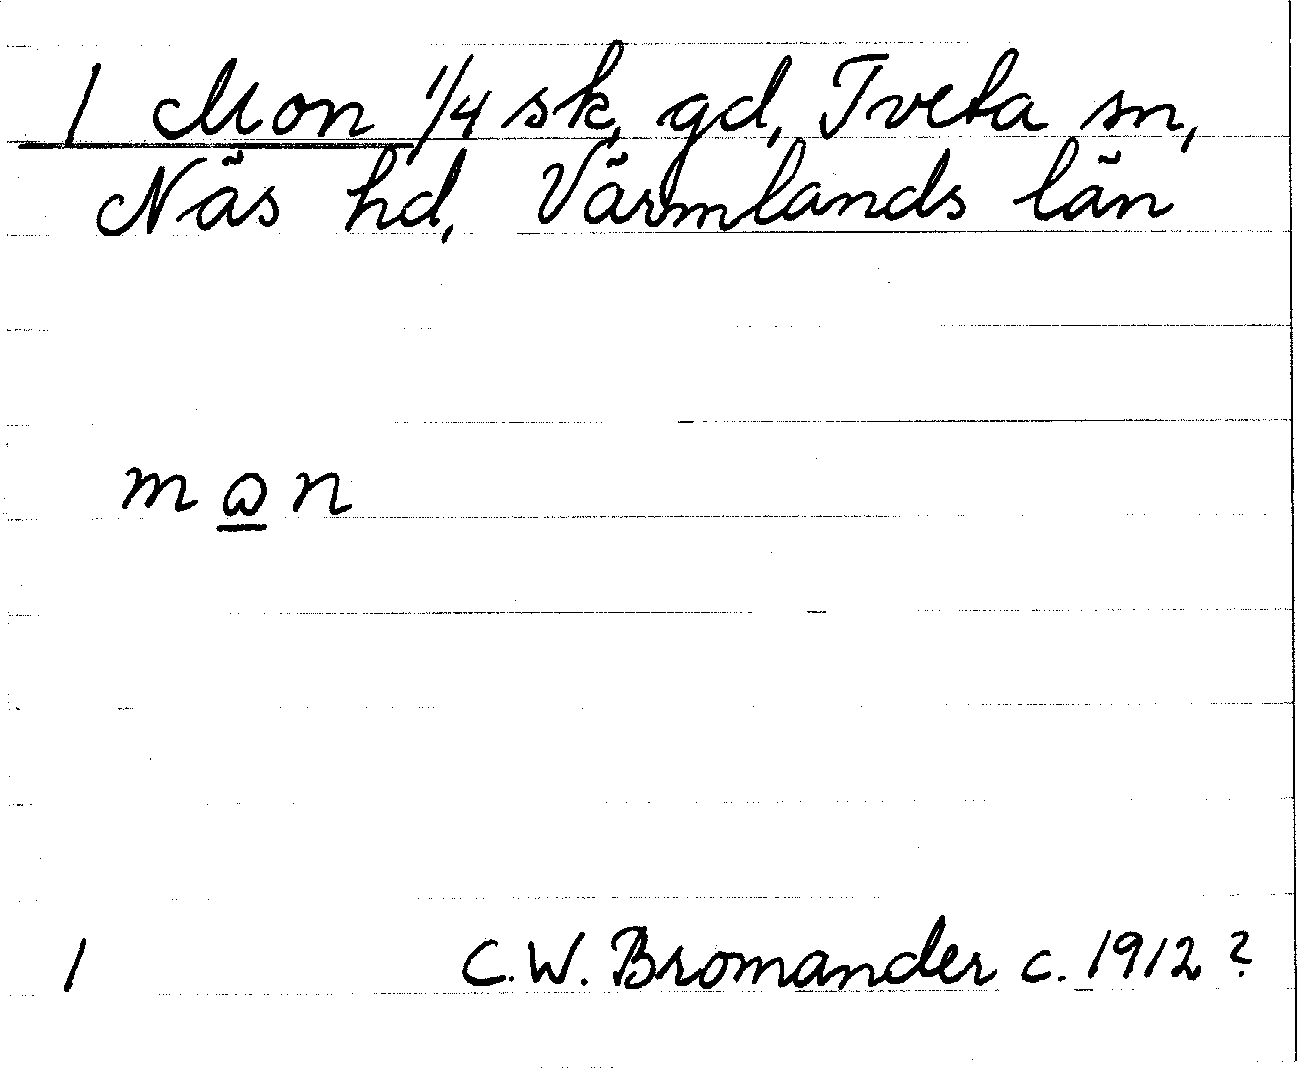 1 Mon 1/4 sk, gd, Tveta sn,
Näs hd, Värmlands län
m ꪹ n
1 C.W. Bromander c. 1912 ?